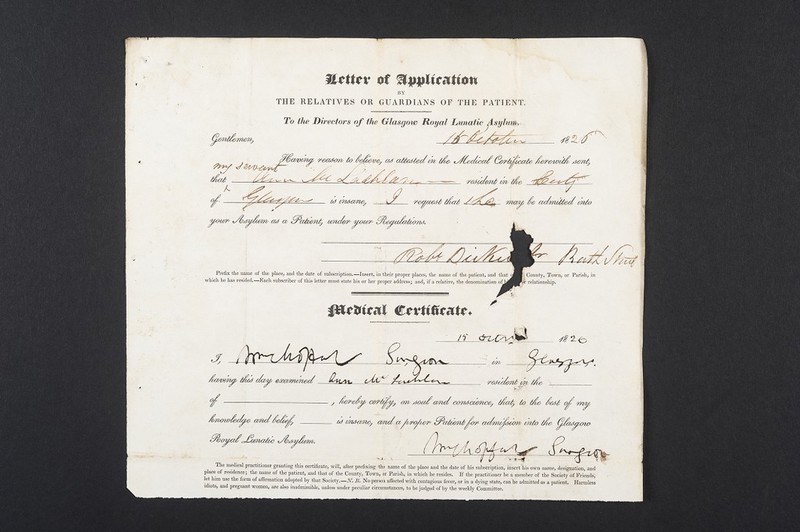 Letter of Application
BY
THE RELATIVES OR GUARDIANS OF THE PATIENT.
To the Directors of the Glasgow Royal Lunatic Asylum.
Gentlemen, 15 October 1826
Having reason to believe, as attested in the Medical Certificate herewith sent,
my servant
that Ann McLachlan resident in the
of Glasgow is insane, I request that she may be admitted into
your Asylum as a Patient, under your Regulations.
Robt Bath Street
Prefix the name of the place, and the date of subscription.—Insert, in their proper places, the name of the patient, and that of County, Town, or Parish, in
which he has resided.—Each subscriber of this letter must state his or her proper address; and, if a relative, the denomination of relationship.
Medical Certificate.
15 1826
I, Surgeon in Glasgow.
having this day examined Ann McLachlan resident in the
of , hereby certify, on soul and conscience, that, to the best of my
knowledge and belief, is insane, and a proper Patient for admission into the Glasgow
Royal Lunatic Asylum.
Surgeon
The medical practitioner granting this certificate, will, after prefixing the name of the place and the date of his subscription, insert his own name, designation, and
place of residence; the name of the patient, and that of the County, Town, or Parish, in which he resides. If the practitioner be a member of the Society of Friends,
let him use the form of affirmation adopted by that Society.—N. B. No person affected with contagious fever, or in a dying state, can be admitted as a patient. Harmless
idiots, and pregnant women, are also inadmissible, unless under peculiar circumstances, to be judged of by the weekly Committee.